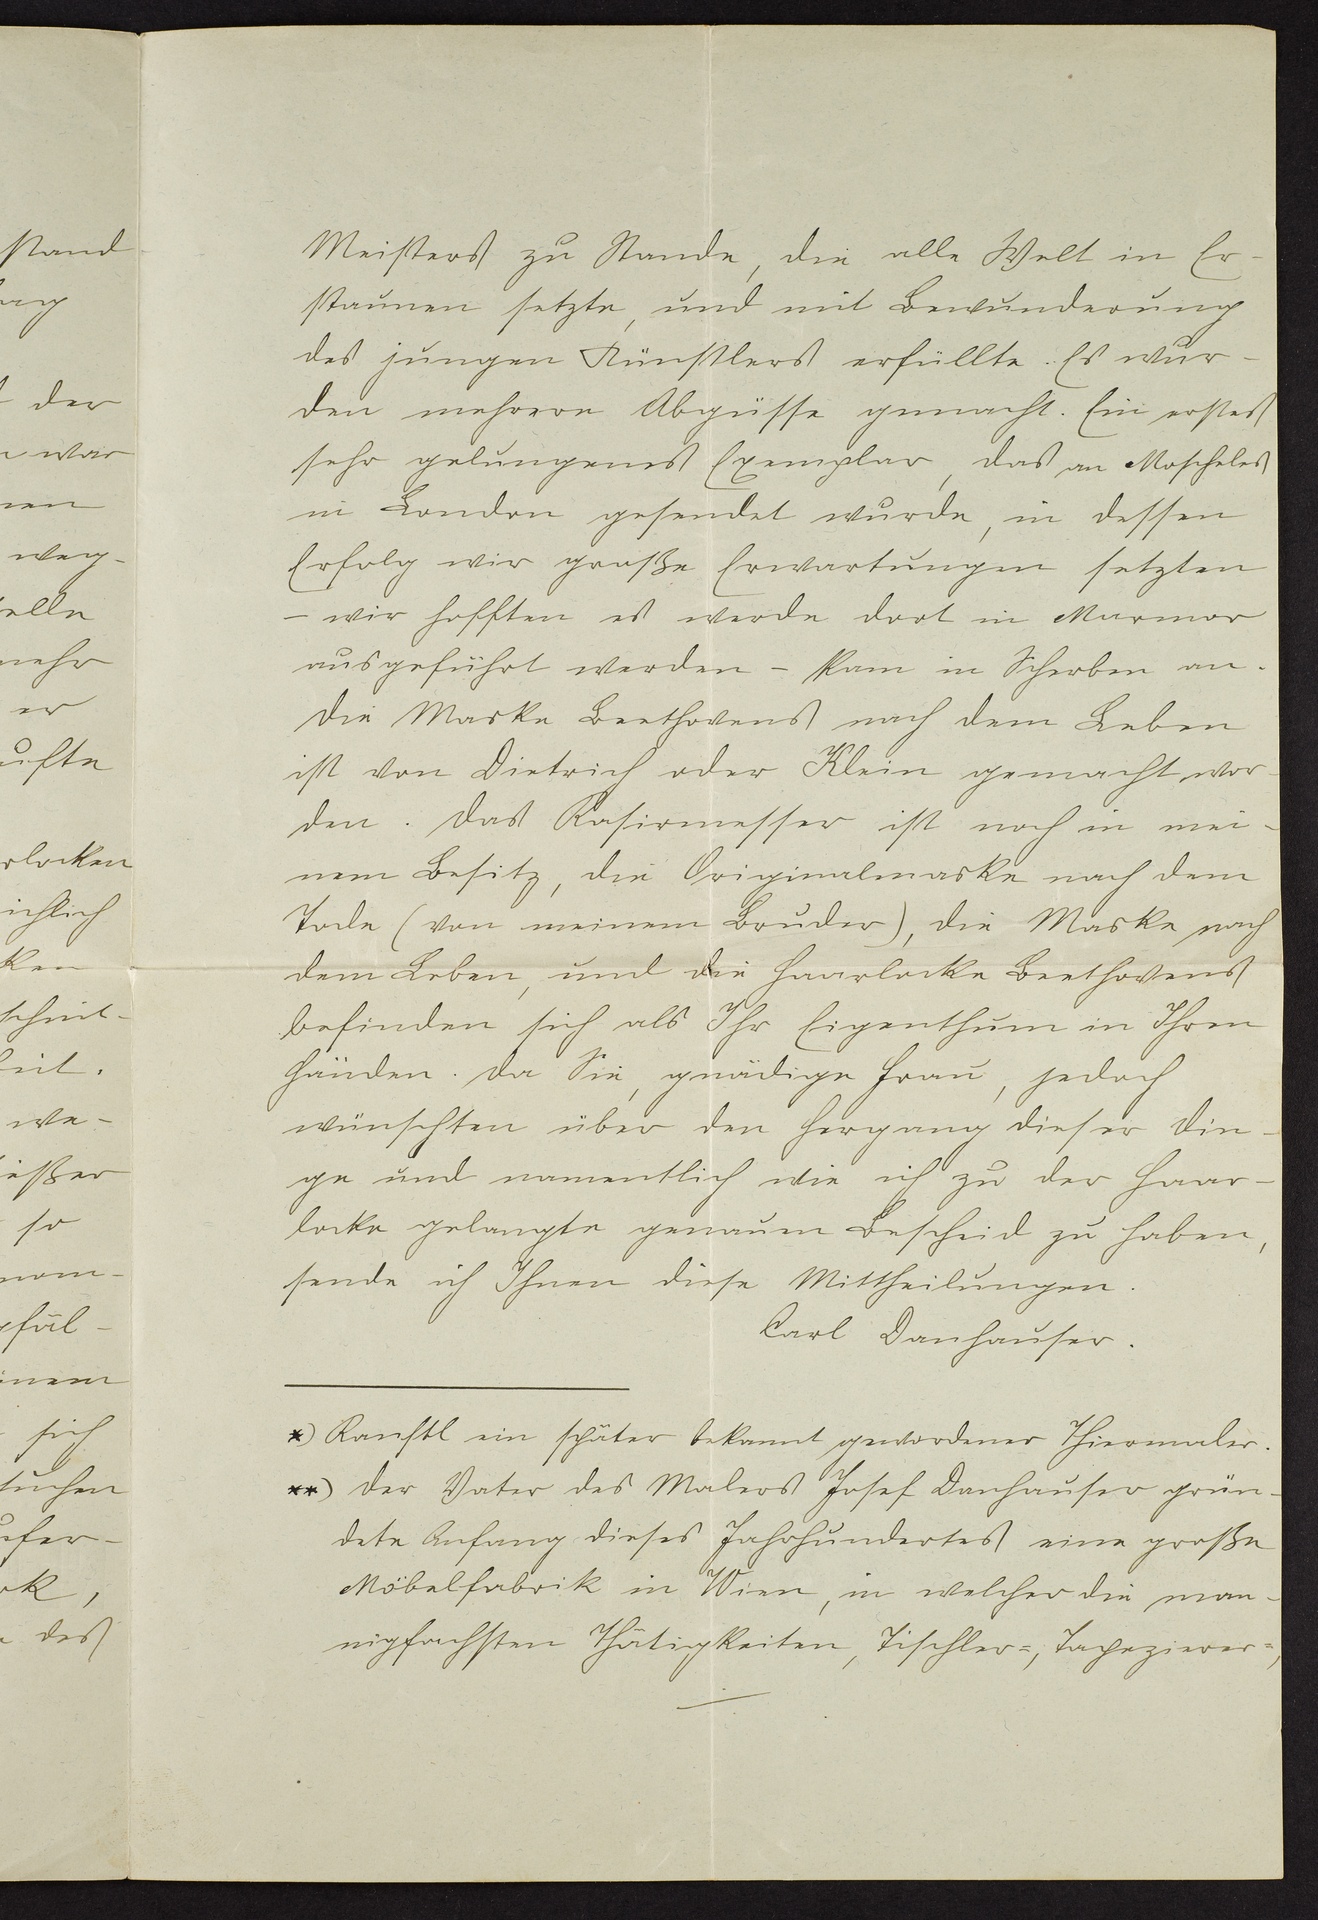 Meisters zu Stande, die alle Welt in Er-
staunen setzte, und mit Bewunderung
des jungen Künstlers erfüllte. Es wur-
den mehrere Abgüsse gemacht. Ein erstes
sehr gelungenes Exemplar, das an Moscheles
in London gesendet wurde, in dessen
Erfolg wir große Erwartungen setzten
– wir hofften es werde dort in Marmor
ausgeführt werden – kam in Scherben an.
Die Maske Beethovens nach dem Leben
ist von Dietrich oder Klein gemacht wor-
den. Das Rasirmesser ist noch in mei-
nem Besitz, die Originalmaske nach dem
Tode (von meinem Bruder), die Maske nach
dem Leben, und die Haarlocke Beethovens
befinden sich als Ihr Eigenthum in Ihren
Händen. Da Sie, gnädige Frau, jedoch
wünschten über den Hergang dieser Din-
ge und namentlich wie ich zu der Haar-
locke gelangte genauen Bescheid zu haben,
sende ich Ihnen diese Mittheilungen.
Carl Danhauser.
*) Ranftl ein später bekannt gewordener Thiermaler.
**) Der Vater des Malers Josef Danhauser grün-
dete Anfang dieses Jahrhundertes eine große
Möbelfabrik in Wien, in welcher die man-
nigfachsten Thätigkeiten, Tischler=, Tapezierer=,
stand
der
war
weg-
mehr
er
so
sich
des